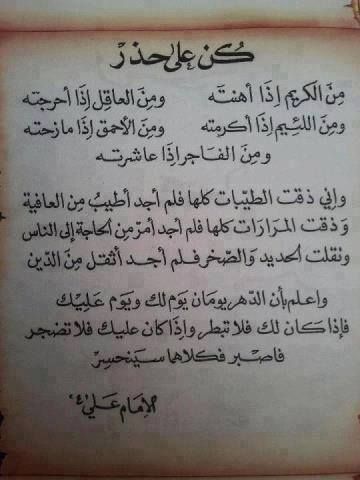 كُن على حذرْ
مِنَ الكريم إذَا أهنتَه ومِنَ العاقِل إذَا أحرجته
ومِنَ اللئيم إذَا أكرمته ومِنَ الأحمق إذَا مازحته
ومِنَ الفاجر إذا عاشرته
وإني ذقت الطيّبات كلها فلم أجد أطيبُ مِن العافية
وَذقت المرَارَات كلها فلم أجد أمرّ مِن الحاجة إلى الناس
ونقلت الحديد وَالصّخر فلم أجد أثقل مِنَ الدّين
واعلم بأن الدّهر يومَان يوَم لك ويوَم عليك
فإذَا كان لك فلا تبطر وإذَا كان عليك فلا تضجر
فاصبر فكلاهما سَينحسِرْ
الإمَام عَلي "ع"